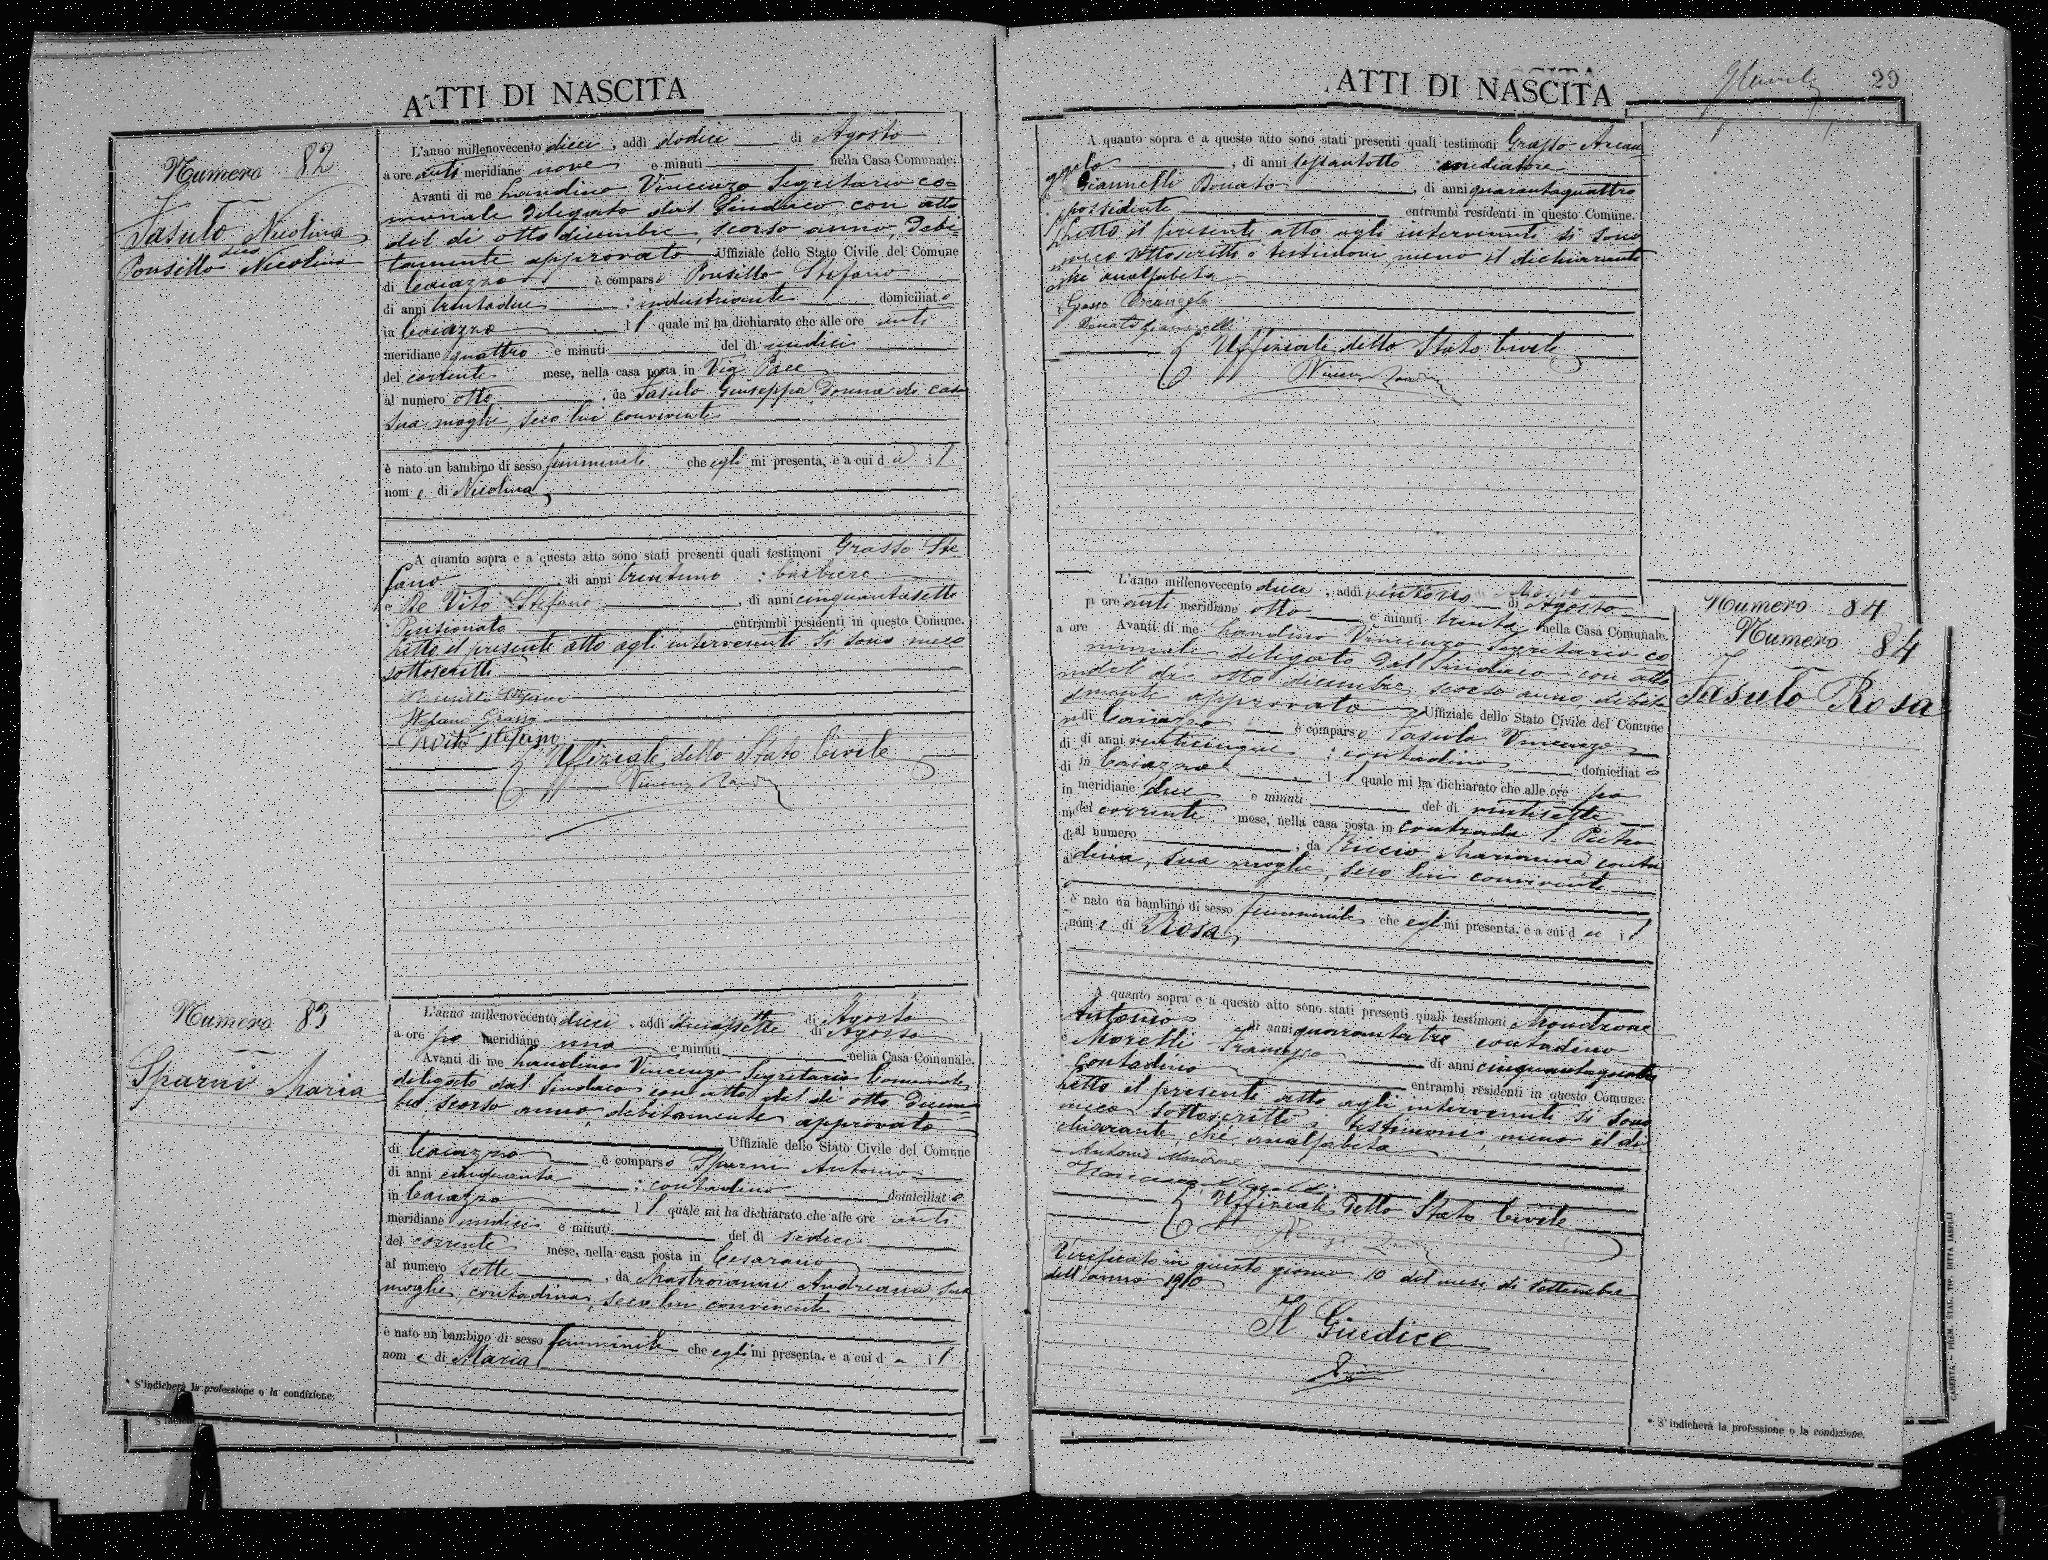 ATTI DI NASCITA
Numero 82
Fasulo Nicolina
dico
Ponsillo Nicolina
L'anno millenovecento dieci, addì dodici di Agosto
a ore anti meridiane nove e minuti nella Casa Comunale.
Avanti di me Landino Vincenzo Segretario co=
munale delegato dal Sindaco con atto
del dì otto dicembre, scorso anno, debi=
tamente approvato Uffiziale dello Stato Civile del Comune
di Caiazzo è comparso Ponsillo Stefano
di anni trentadue : industriante domiciliato
in Caiazzo il quale mi ha dichiarato che alle ore anti
meridiane quattro e minuti del dì undici
del corrente mese, nella casa posta in Via Pace
al numero otto, da Fasulo Giuseppa Donna di casa
sua moglie, seco lui convivente
è nato un bambino di sesso femminile che egli mi presenta, e a cui dà il
nome di Nicolina
A quanto sopra e a questo atto sono stati presenti quali testimoni Grasso Ste
fano, di anni trentuno : barbiere
e De Vito Stefano, di anni cinquantasette
Pensionato entrambi residenti in questo Comune.
Letto il presente atto agli intervenuti si sono meco
sottoscritti
Ponsillo Stefano
Stefano Grasso
Devito Stefano
L'Uffiziale dello Stato Civile
Numero 83
Sparni Maria
L'anno millenovecento dieci, addì diciassette di Agosto
a ore po meridiane una e minuti nella Casa Comunale.
Avanti di me Landino Vincenzo Segretario Comunale
delegato dal Sindaco con atto del dì otto Dicem=
bre scorso anno, debitamente approvato
Uffiziale dello Stato Civile del Comune
di Caiazzo è comparso Sparni Antonio
di anni cinquanta : contadino domiciliato
in Caiazzo il quale mi ha dichiarato che alle ore anti
meridiane undici e minuti del dì sedici
del corrente mese, nella casa posta in Cesarano
al numero sette, da Mastroianni Andreana, sua
moglie, contadina, seco lui convivente
è nato un bambino di sesso femminile che egli mi presenta, e a cui dà il
nome di Maria
* S'indicherà la professione o la condizione.
ATTI DI NASCITA
29
A quanto sopra e a questo atto sono stati presenti quali testimoni Grasso Arcan
gelo, di anni sessantotto mediatore
e Giannelli Donato, di anni quarantaquattro
possidente entrambi residenti in questo Comune.
Letto il presente atto agli intervenuti si sono
meco sottoscritti i testimoni, meno il dichiarante
ché analfabeta
Grasso Arcangelo
Donato Giannelli
L'Uffiziale dello Stato Civile
Numero 84
Numero 84
Fasulo Rosa
L'anno millenovecento dieci, addì ventotto di Agosto
a ore anti meridiane otto e minuti trenta nella Casa Comunale.
Avanti di me Landino Vincenzo Segretario co
munale delegato dal Sindaco con atto
del dì otto dicembre, scorso anno, debita
mente approvato Uffiziale dello Stato Civile del Comune
di Caiazzo è comparso Fasulo Vincenzo
di anni venticinque : contadino
in Caiazzo domiciliato
il quale mi ha dichiarato che alle ore po
meridiane due e minuti del dì ventisette
del corrente mese, nella casa posta in contrada S. Pietro
al numero, da Riccio Marianna conta
dina, sua moglie, seco lui convivente
è nato un bambino di sesso femminile che egli mi presenta, e a cui dà il
nome di Rosa
A quanto sopra e a questo atto sono stati presenti quali testimoni Mondrone
Antonio, di anni quarantatre contadino
e Morelli Francesco, di anni cinquantaquattro
contadino entrambi residenti in questo Comune.
Letto il presente atto agli intervenuti si sono
meco sottoscritti i testimoni, meno il di=
chiarante, ché analfabeta
Antonio Mondrone
L'Uffiziale dello Stato Civile
Verificato in questo giorno 10 del mese di Settembre
dell'anno 1910
Il Giudice
* S'indicherà la professione o la condizione.